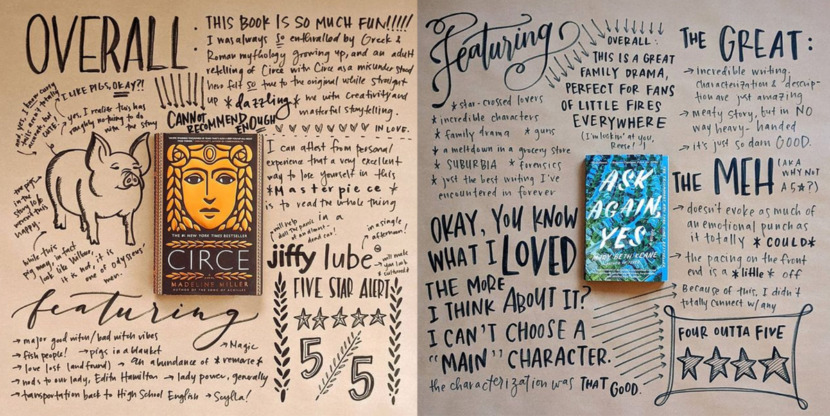 OVERALL:
THIS BOOK IS SO MUCH FUN!!!!!
I was always so enthralled by Greek &
Roman mythology growing up, and an adult
retelling of Circe with Circe as a misunderstood
hero felt so true to the original while straight
up *dazzling* me with creativity and
masterful storytelling.
I LIKE PIGS, OKAY?!
yes, I realize this has
roughly nothing to do
with the story
CANNOT
RECOMMEND ENOUGH
IN LOVE.
I can attest from personal
experience that a very excellent
way to lose yourself in this
*Masterpiece*
is to read the whole thing
in a
in a single
afternoon!
jiffy lube
FIVE STAR ALERT
5/5
the pigs
in the
story
need this
happy.
while this
pig may in fact
look like Wilbur,
it is not, it is
one of Odysseus'
men.
THE #1 NEW YORK TIMES BESTSELLER
CIRCE
MADELINE MILLER
AUTHOR OF THE SONG OF ACHILLES
featuring
→ major good witch/bad witch vibes
→ fish people! → pigs in a blanket → Magic
→ love lost (and found) → an abundance of *remorse*
→ nods to our lady, Edith Hamilton → lady power, generally
→ transportation back to High School English → Scylla!
Featuring
*star-crossed lovers
*incredible characters
*family drama *guns
*a meltdown in a grocery store
*SUBURBIA *forensics
*just the best writing I've
encountered in forever
OVERALL:
THIS IS A GREAT
FAMILY DRAMA,
PERFECT FOR FANS
OF LITTLE FIRES
EVERYWHERE
(I'm lookin' at you,
Reese!)
THE GREAT:
→ incredible writing,
characterization & description
are just amazing
→ meaty story, but in NO
way heavy-handed
→ it's just so darn GOOD.
ASK
AGAIN,
YES
MARY BETH KEANE
THE MEH (AKA
WHY NOT
A 5*?)
→ doesn't evoke as much of
an emotional punch as
it totally *COULD*
→ the pacing on the front
end is a *little* off
Because of this, I didn't
totally connect w/any
OKAY, YOU KNOW
WHAT I LOVED
THE MORE
I THINK ABOUT IT?
I CAN'T CHOOSE A
"MAIN" CHARACTER.
the characterization was THAT GOOD.
FOUR OUTTA FIVE